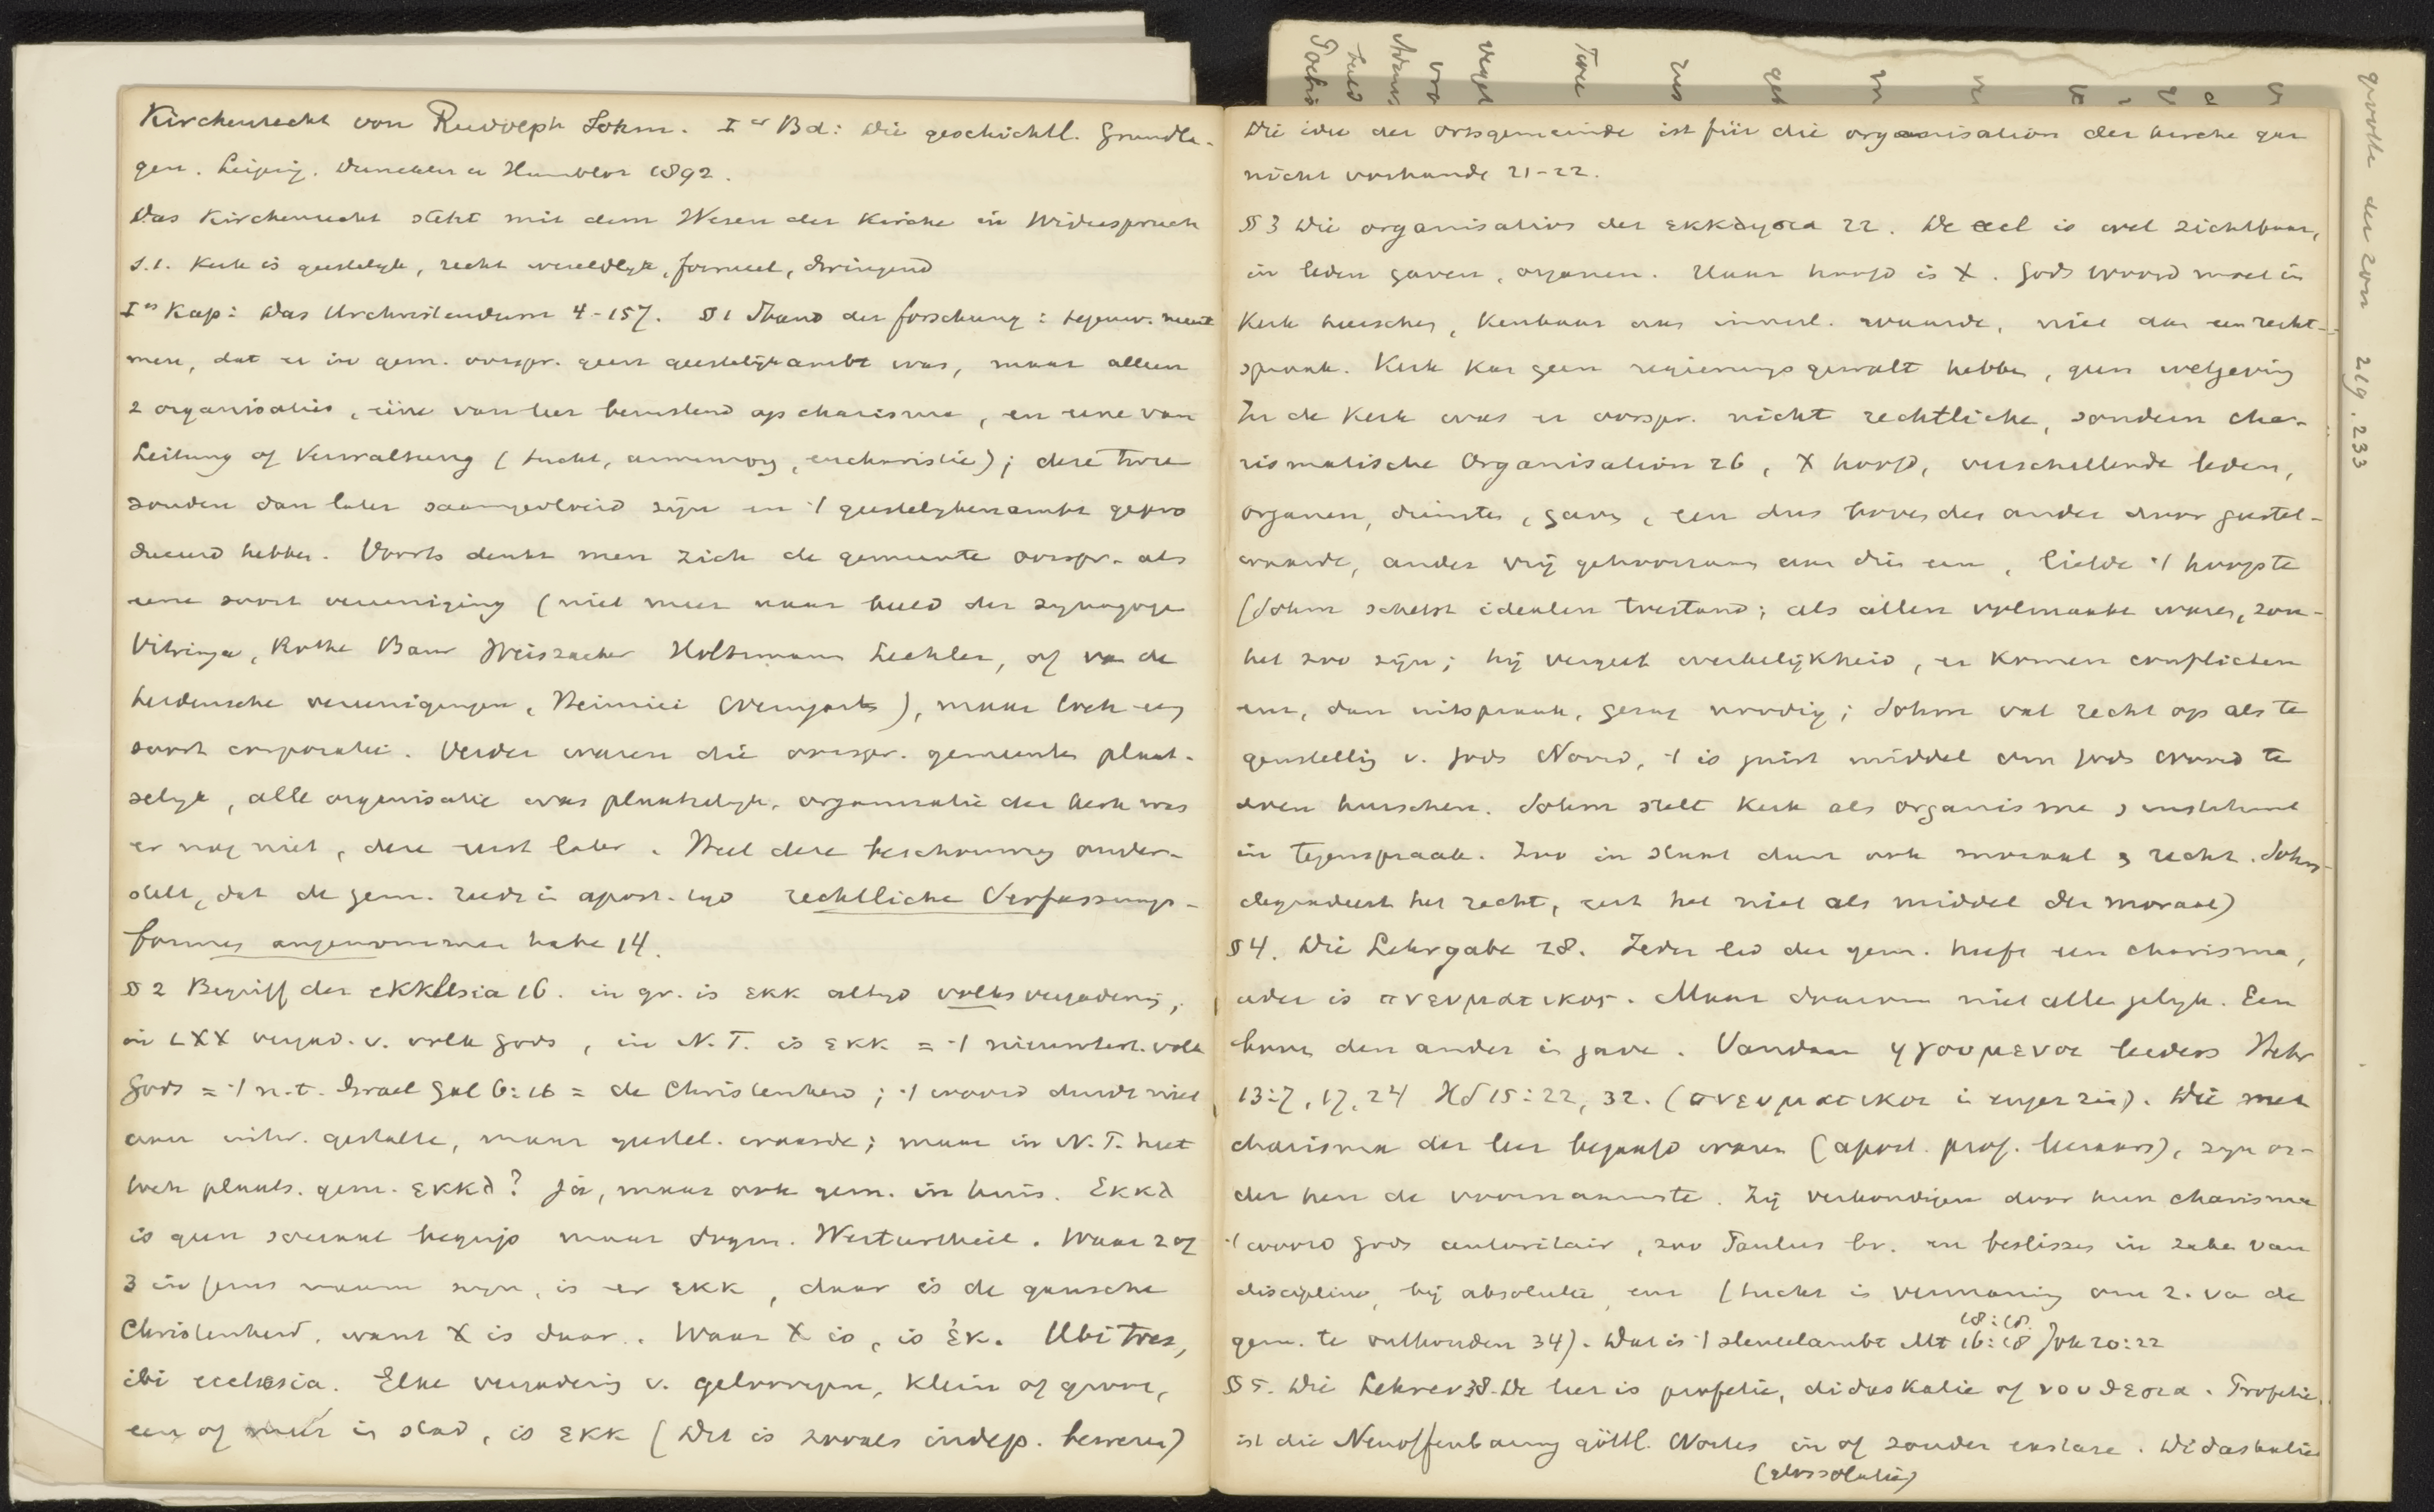 Kirchenrecht von Rudolph Sohm. Ier Bd: Die geschichtl. Grundla-
gen. Leipzig. Duncker u Humblot 1892.
Das Kirchenrecht steht mit dem Wesen der Kirche in Widerspruch
S.1. Kerk is geestelyk, recht wereldlyk, formeel, dwingend
Ies Kap: Das Urchristendum 4-157. § 1 Stand der forschung: tegenw. meent
men, dat er in gem. oorspr. geen geestelijk ambt was, maar alleen
2 organisaties, eene van leer berustend op charisma, en eene van
Leitung of Verwaltung (tucht, armenzorg, eucharistie); deze twee
zouden dan later saamgevloeid zijn en 't geestelyken ambt gepro
duceerd hebben. Voorts denkt men zich de gemeente oorspr. als
eene soort vereeniging (niet meer naar beeld der synagoge
Vitringa, Rothe Baur Weiszacker Holtzmann Lechler, of van de
heidensche vereenigingen, Heinrici Weingarten), maar toch een
soort corporatie. Verder waren die oorspr. gemeenten plaat-
selyk, alle organisatie was plaatselyk, organisatie der kerk was
er nog niet, deze eerst later. Heel deze beschouwing onder-
stelt, dat de gem. reeds in apost. tyd rechtliche Verfassungs-
formen angenommen habe 14.
§ 2 Begriff der ekklesia 16. in gr. is εκκ altyd volksvergadering,
in LXX vergad. v. volk Gods, in N.T. is εκκ = 't nieuwtest. volk
Gods = 't n.t. Israel Gal 6:16 = de Christenheid; 't woord duidt niet
aan uitw. gestalte, maar geestel. waarde; maar in N.T. heet
toch plaats. gem. εκκλ? Ja, maar ook gem. in huis. Εκκλ
is geen sociaal begrip maar dogm. Werturtheil. Waar 2 of
3 in Jezus naam zyn, is er εκκ, daar is de gansche
Christenheid, want X is daar. Waar X is, is ἐκ. Ubi tres,
ibi ecclesia. Elke vergadering v. geloovigen, klein of groot,
een of meer in stad, is εκκ (Dit is zooals indep. beweren)
Die idee der ortsgemeinde ist für die organisation der kirche gar
nicht vorhande 21-22.
§ 3 Die organisation der εκκλησια 22. De eccl is wel zichtbaar,
in leden gaven, organen. Haar hoofd is X. Gods woord moet in
Kerk heerschen, kenbaar aan innerl. waarde, niet dan een recht-
spraak. Kerk kan geen regierungsgewalt hebben, geen wetgeving
In de Kerk was er oorspr. nicht rechtliche, sondern cha-
rismatische Organisation 26, X hoofd, verschillende leden,
organen, diensten, gaven, een dus boven der ander door geestel-
waarde, ander vrij gehoorzaam aan die een, liefde 't hoogste
(Sohm schetst idealen toestand; als allen volmaakt waren, zou
het zoo zijn; hij vergeet werkelijkheid, er komen conflicten
enz, dan uitspraak, gezag noodig; Sohm vat recht op als te
genstelling v. Gods Woord, 't is juist middel om Gods woord te
doen heerschen. Sohm stelt kerk als organisme en instituut
in tegenspraak. Zoo in staat dan ook moraal en recht. Sohm
degradeert het recht, eert het niet als middel der moraal)
§ 4. Die Lehrgabe 28. Ieder lid der gem. heeft een charisma,
ieder is πνευματικος. Maar daarom niet alle gelyk. Een
boven den ander in gave. Vandaar ηγουμενοι leiders Hebr
13:7, 17, 24 Hd 15:22, 32. (πνευματικοι in enger zin). Die met
charisma der leer begaafd waren (apost. prof. leeraars), zyn on-
der hen de voornaamste. Zij verkondigen door hun charisma
't woord Gods autoritair, zoo Paulus bv. en beslissen in zake van
discipline, bij absolutie enz (tucht is vermaning om z. van de
gem. te onthouden 34). Dat is 't sleutelambt Mt 16:18 18:18. Joh 20:22
§ 5. Die Lehrer 38. De leer is profetie, didaskalie of νουθεσια. Profetie
ist die Neuoffenbarung göttl. Wortes in of zonder extase. Didaskalie
(glossolalie)
grootte der zon 219.233